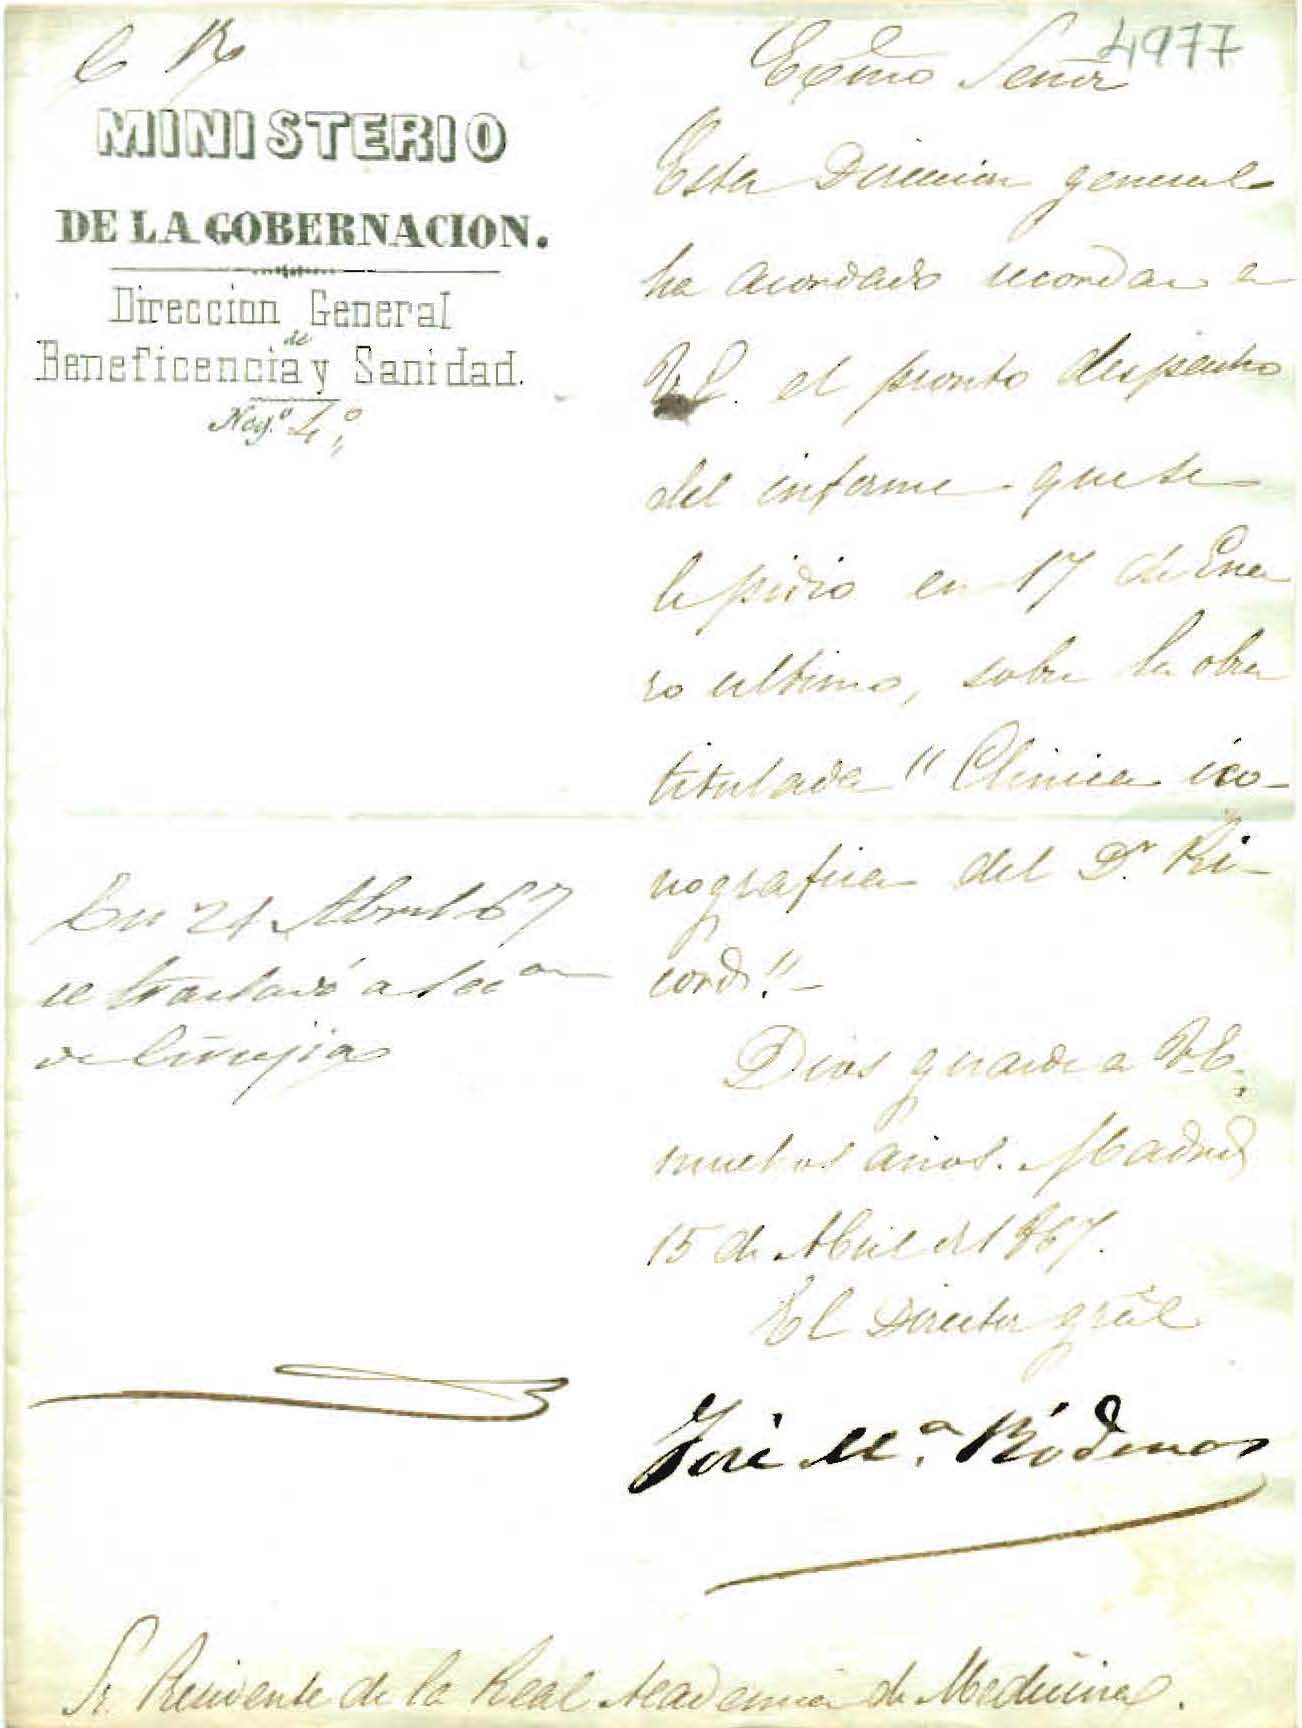 C R
MINISTERIO
DE LA GOBERNACION.
Direccion General
de
Beneficencia y Sanidad.
Neg.º 4.º
Excmo Señor
4977
Esta Direccion general
ha acordado recordar a
V.E. el pronto despacho
del informe que se
le pidio en 17 de Ene
ro ultimo, sobre la obra
titulada "Clinica ico-
nografica del Dr. Ri-
cord".-
Dios guarde a V.E.
muchos años. Madrid
15 de Abril de 1867.
El Director gral
José Mª. Ródenas
En 24 Abril 67
se trasladó a Secon
de Cirujia
Sr. Presidente de la Real Academia de Medicina.